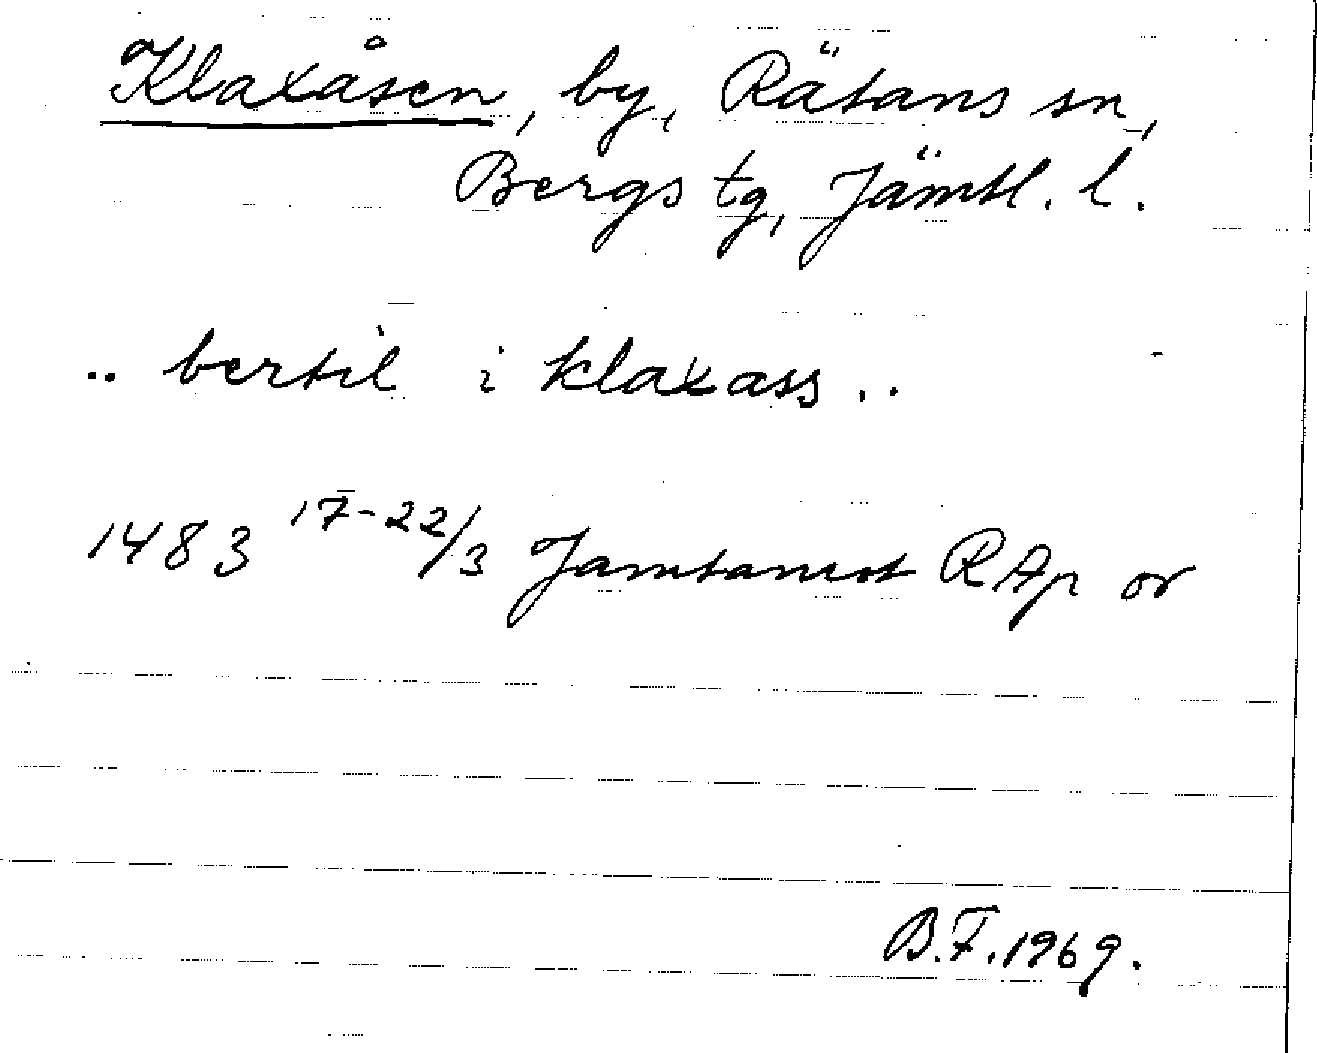 Klaxåsen, by, Rätans sn,
Bergs tg, Jämtl. l.
.. bertil i klaxass ..
1483 17-22/3 Jamtamot RAp or
B.F. 1969.